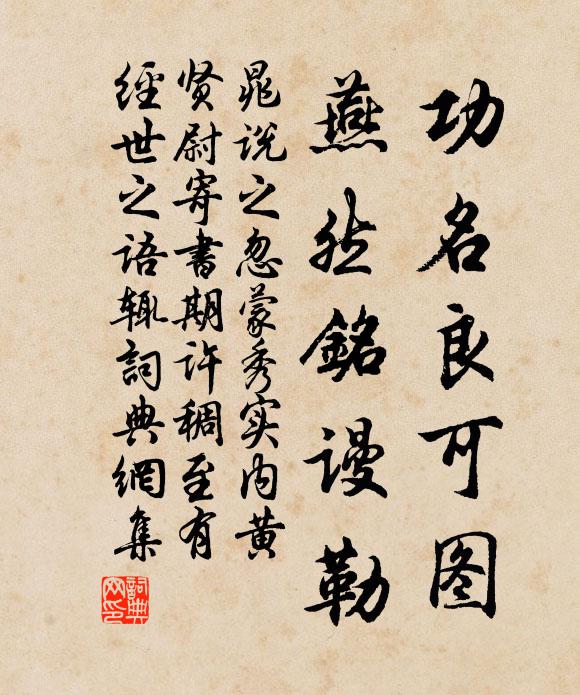 功名良可图
燕然銘谩勒
晁说之忽蒙秀实内黄
贤尉寄書期许稠至有
經世之语辄詞典網集
詞典
网印